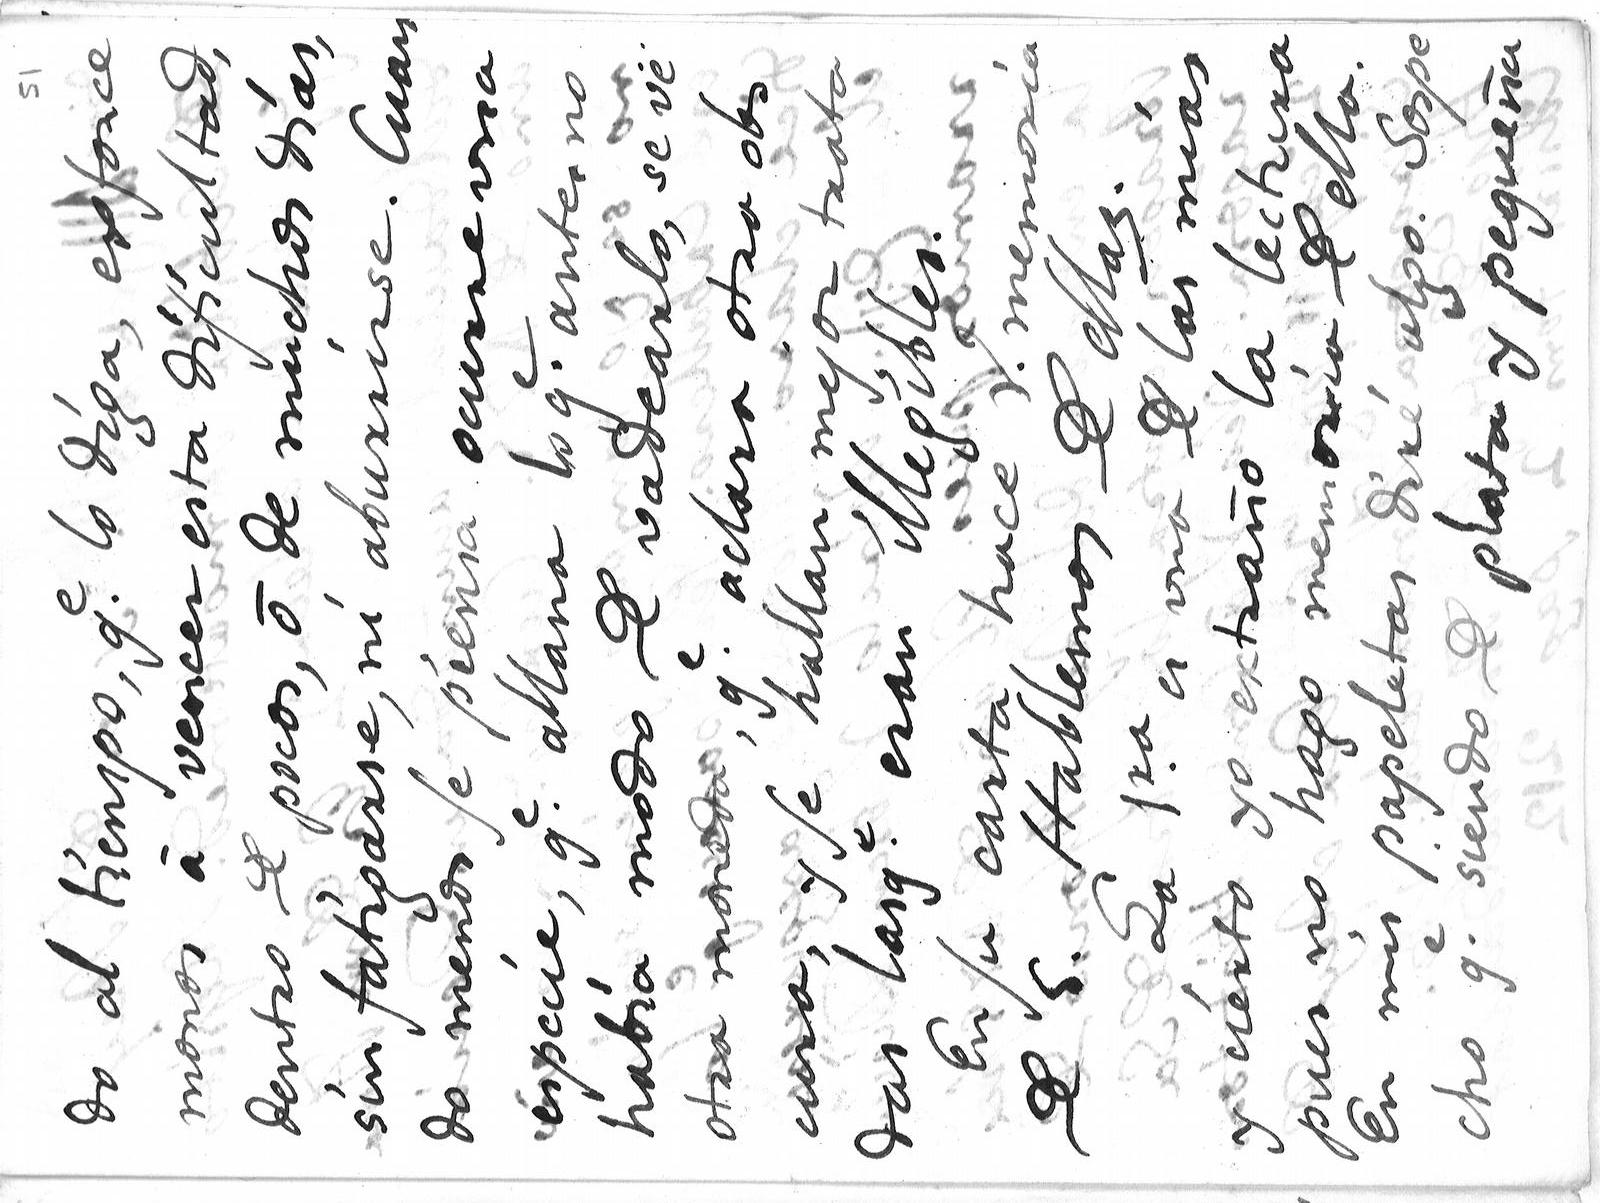 51
do al tiempo, q.e lo diga, esforce
monos à vencer esta dificultad,
dentro de pocos, ō de muchos dias,
sin fatigarse, ni aburrirse. Cuan
do menos se piensa ocurre una
especie, q.e allana lo q.e antes no
habia modo de vadearlo, se vé
otra moneda, q.e aclara otra obs
cura, y se hallan mejor trata
das las q.e eran illegibles.
En su carta hace V. memoria
de 5. Hablemos de ellas.
La 1.ra es una de las mas
y cierto yo extraño la lectura
pues no hago memoria de ella.
En mis papeletas diré algo. Sospe
cho q.e siendo de plata y pequeña